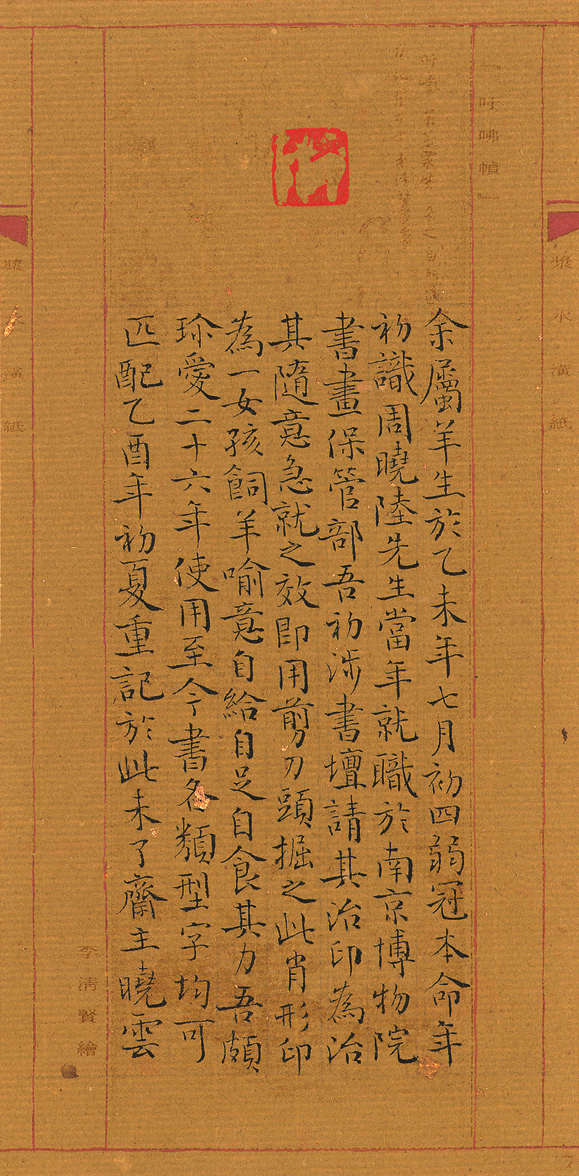 余屬羊生於乙未年七月初四弱冠本命年
初識周曉陸先生當年就職於南京博物院
書畫保管部吾初涉書壇請其治印為治
其隨意急就之效即用剪刀頭掘之此肖形印
為一女孩飼羊喻意自給自足自食其力吾頗
珍愛二十六年使用至今書各類型字均可
匹配乙酉年初夏重記於此未了齋主曉雲
李清賢繪